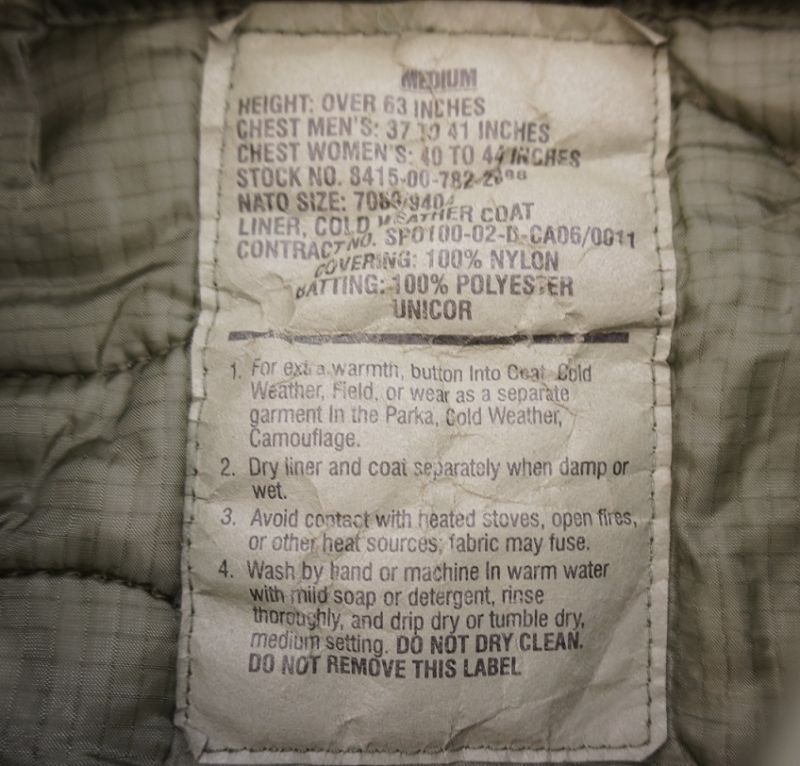 MEDIUM
HEIGHT: OVER 63 INCHES
CHEST MEN'S: 37 TO 41 INCHES
CHEST WOMEN'S: 40 TO 44 INCHES
STOCK NO. 8415-00-782-2888
NATO SIZE:
LINER, COLD WEATHER COAT
CONTRACT NO. SPO100-02-D-CA06/0011
COVERING: 100% NYLON
BATTING: 100% POLYESTER
UNICOR
1. For extra warmth, button Into Coat, Cold
Weather, Field, or wear as a separate
garment In the Parka, Cold Weather,
Camouflage.
2. Dry liner and coat separately when damp or
wet.
3. Avoid contact with heated stoves, open fires,
or other heat sources; fabric may fuse.
4. Wash by hand or machine In warm water
with mild soap or detergent, rinse
thoroughly, and drip dry or tumble dry,
medium setting. DO NOT DRY CLEAN.
DO NOT REMOVE THIS LABEL